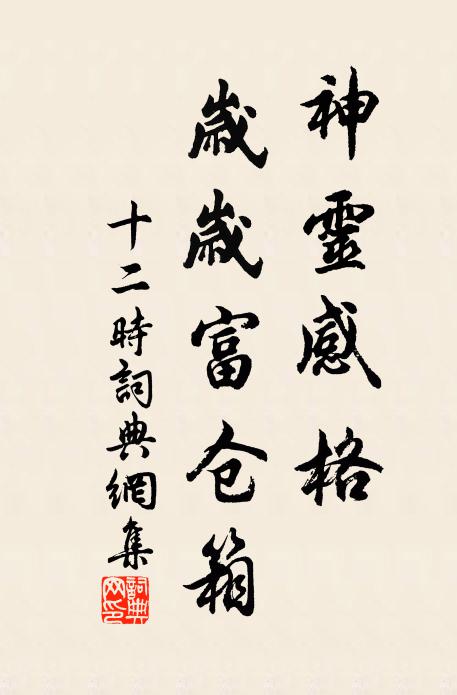 神靈感格
歲歲富仓箱
十二時詞典網集
詞典网印